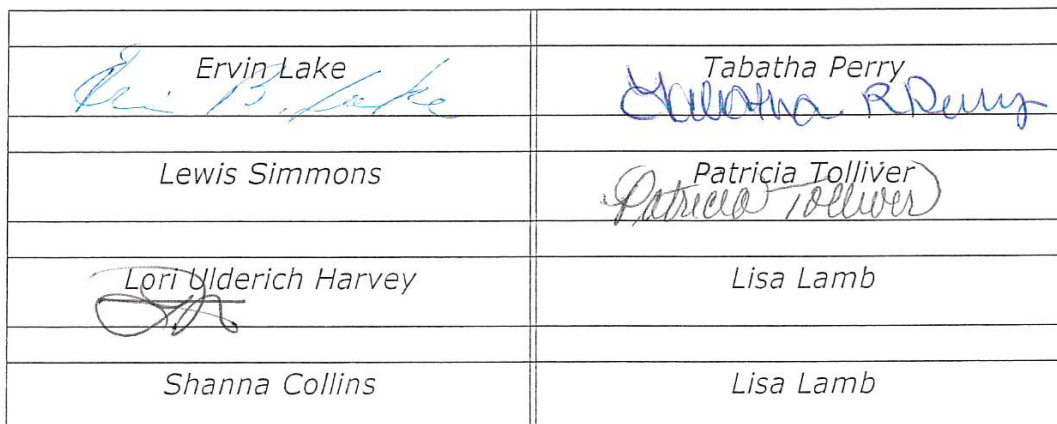 Ervin Lake
Ervin B. Lake
Tabatha Perry
Tabatha R Perry
Lewis Simmons
Patricia Tolliver
Patricia Tolliver
Lori Ulderich Harvey
Lisa Lamb
Shanna Collins
Lisa Lamb